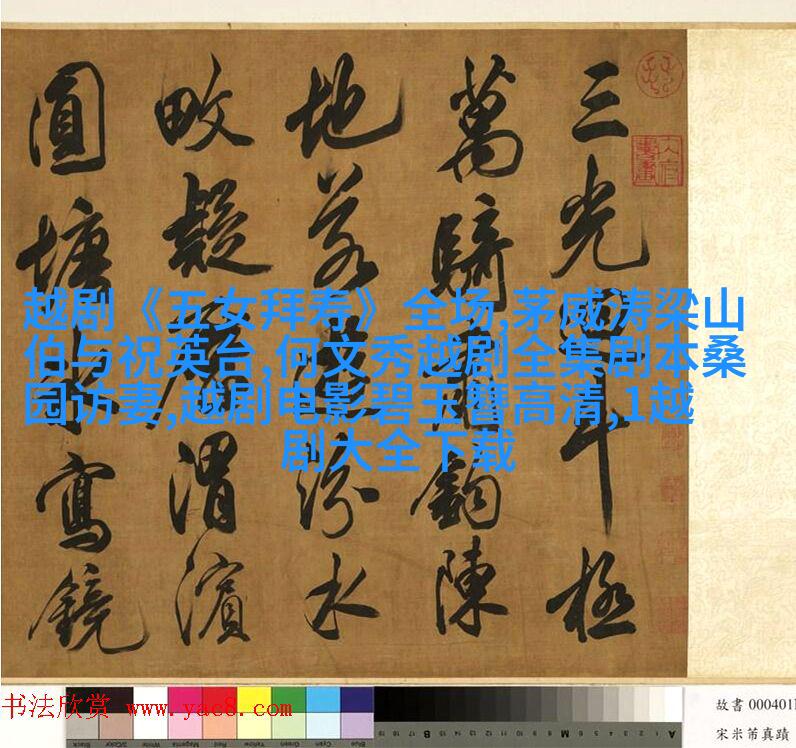 三光斗極
萬騎鉤陳
地若汾水
畋疑渭濱
圓塘寫鏡
越剧《五女拜寿》全场,茅威涛梁山
伯与祝英台,何文秀越剧全集剧本桑
园访妻,越剧电影碧玉簪高清,1越
剧大全下载
书法欣赏 www.yac8.com
故書 000401
宋米芾真蹟